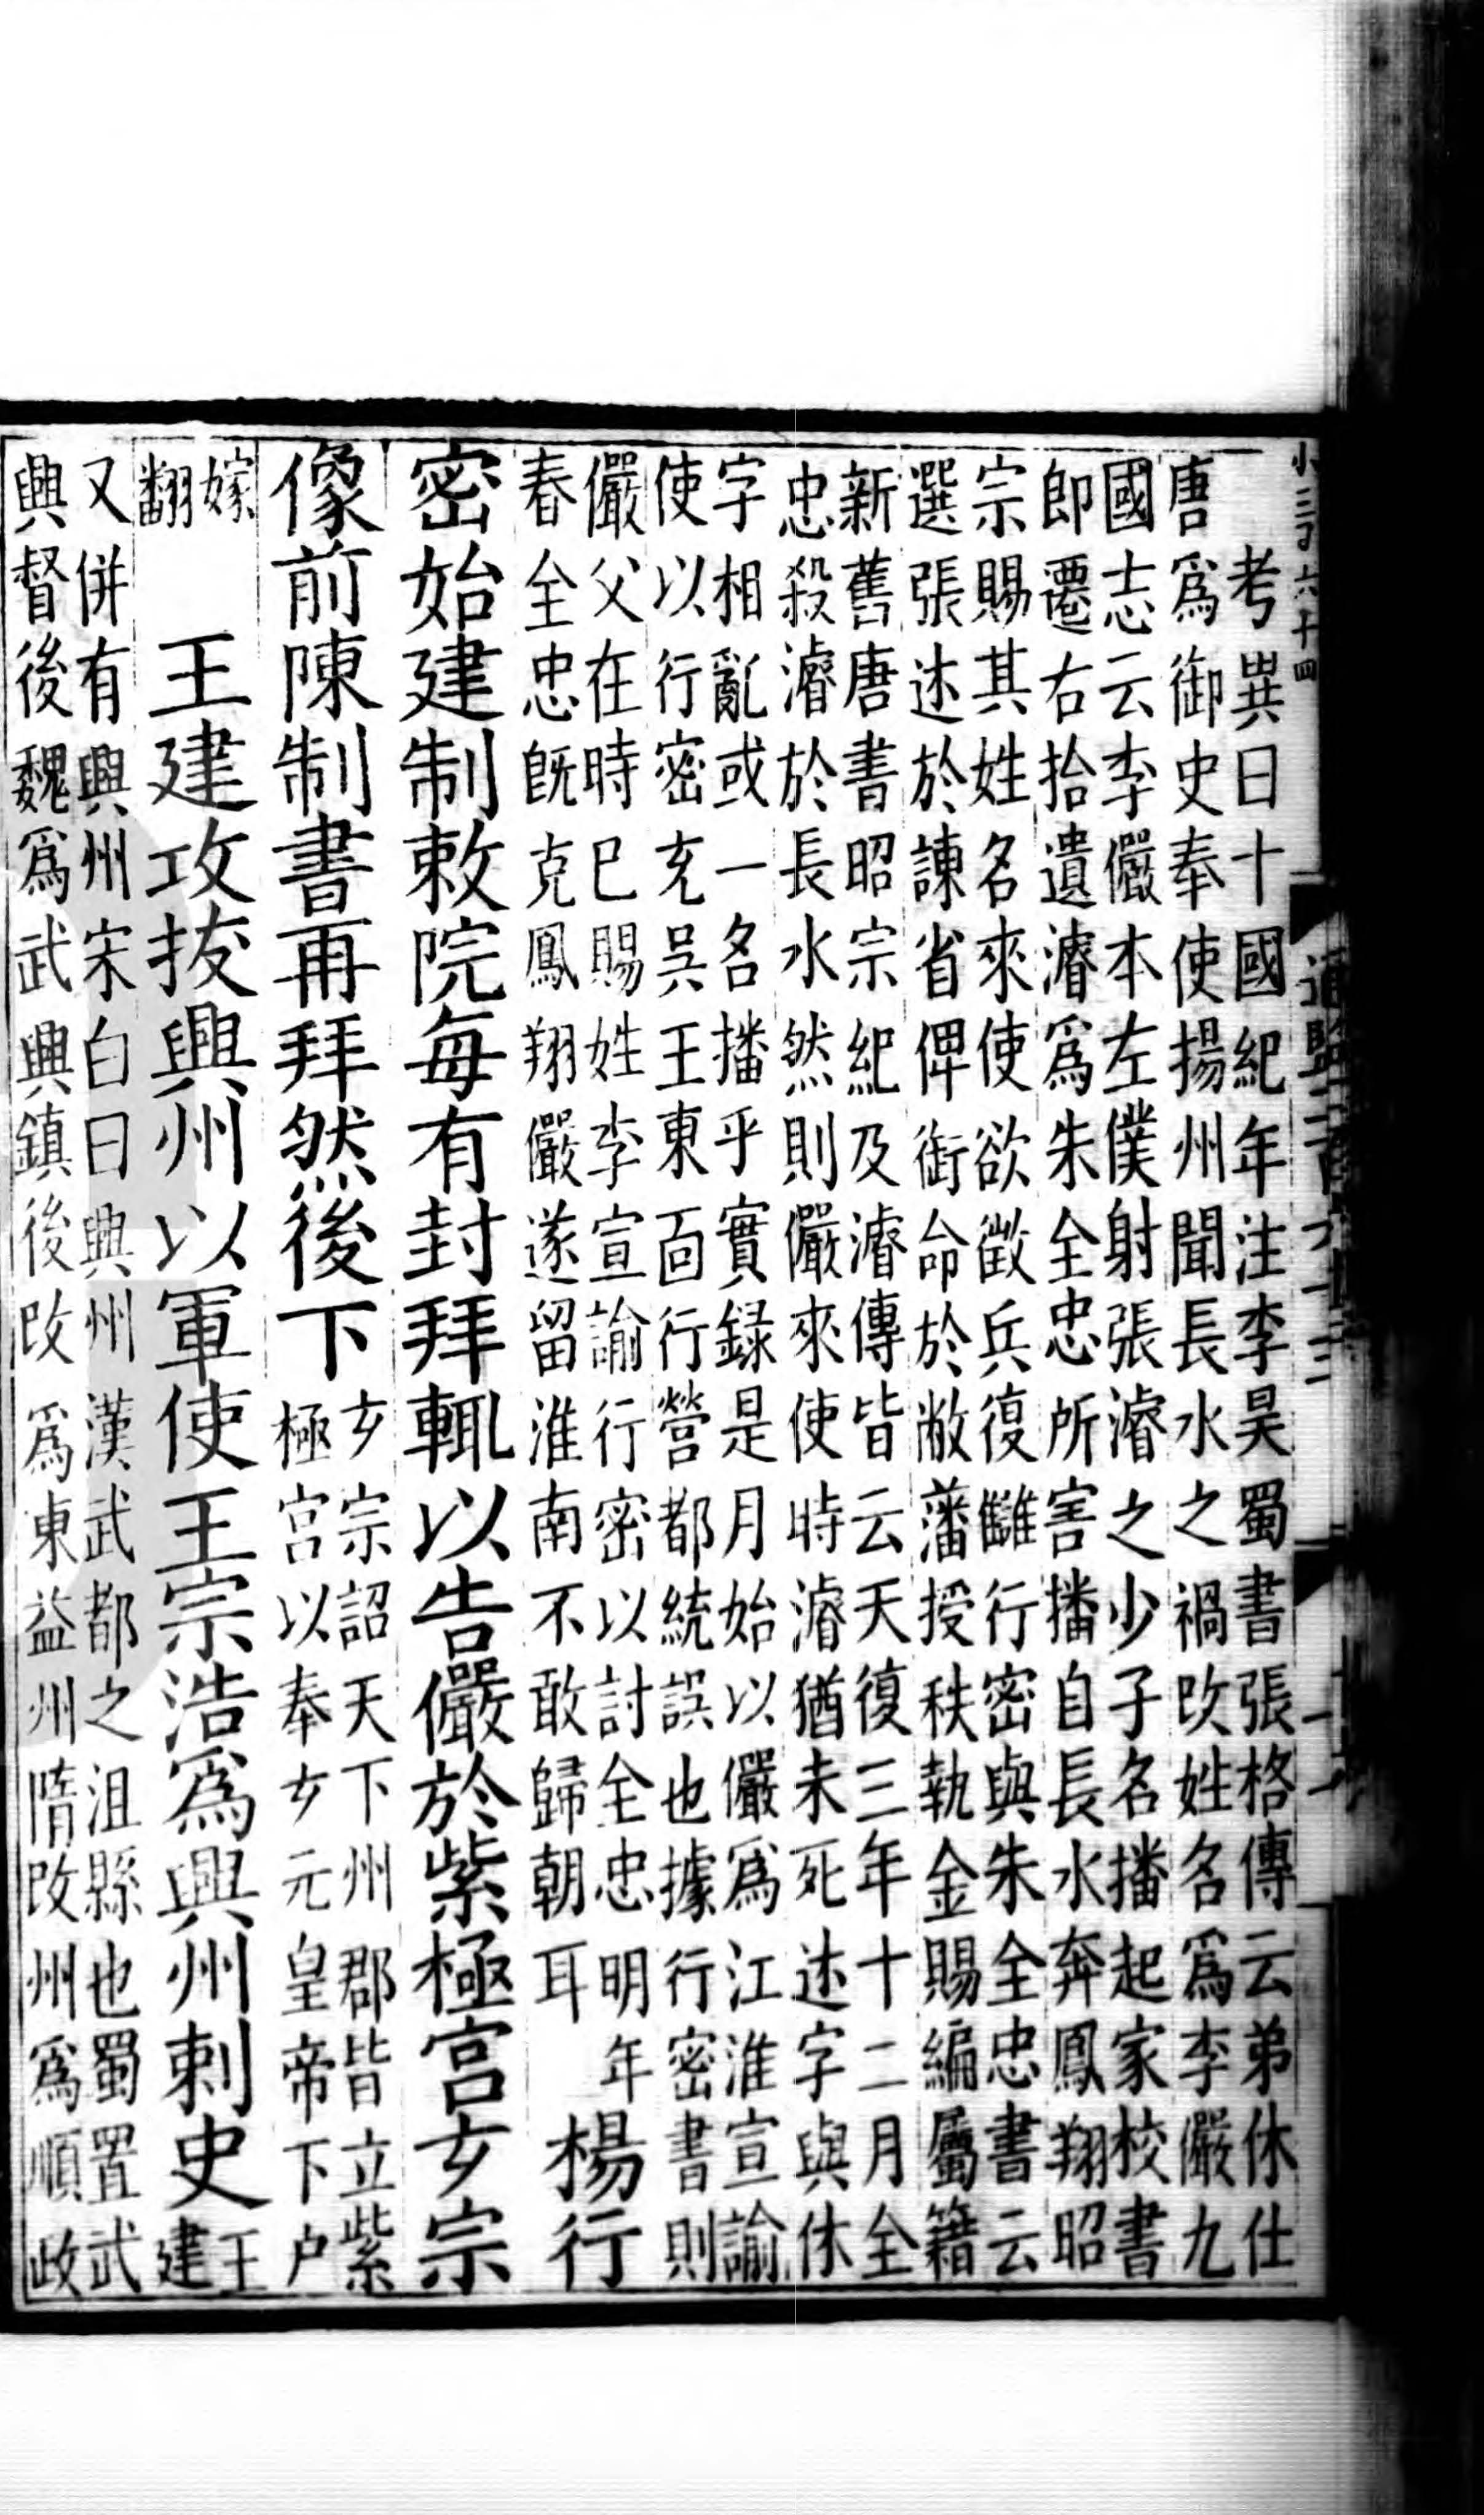 小三百六十四
考異曰十國紀年注李昊蜀書張格傳云弟休仕
唐爲御史奉使揚州聞長水之禍改姓名爲李儼九
國志云李儼本左僕射張濬之少子名播起家校書
即遷右拾遺濬爲朱全忠所害播自長水奔鳳翔昭
宗賜其姓名來使欲徵兵復讎行密與朱全忠書云
選張述於諫省俾銜命於敝藩授秩執金賜編屬籍
新舊唐書昭宗紀及濬傳皆云天復三年十二月全
忠殺濬於長水然則儼來使時濬猶未死述字與休
字相亂或一名播乎實録是月始以儼爲江淮宣諭
使以行密充吳王東面行營都統誤也據行密書則
儼父在時已賜姓李宣諭行密以討全忠明年
春全忠旣克鳳翔儼遂留淮南不敢歸朝耳
楊行
密始建制敕院每有封拜輒以告儼於紫極宮玄宗
像前陳制書再拜然後下
玄宗詔天下州郡皆立紫
極宮以奉玄元皇帝下户
嫁
翻
王建攻拔興州以軍使王宗浩爲興州刺史
王
建
又併有興州宋白曰興州漢武都之沮縣也蜀置武
興督後魏爲武興鎮後改爲東益州隋改州爲順政